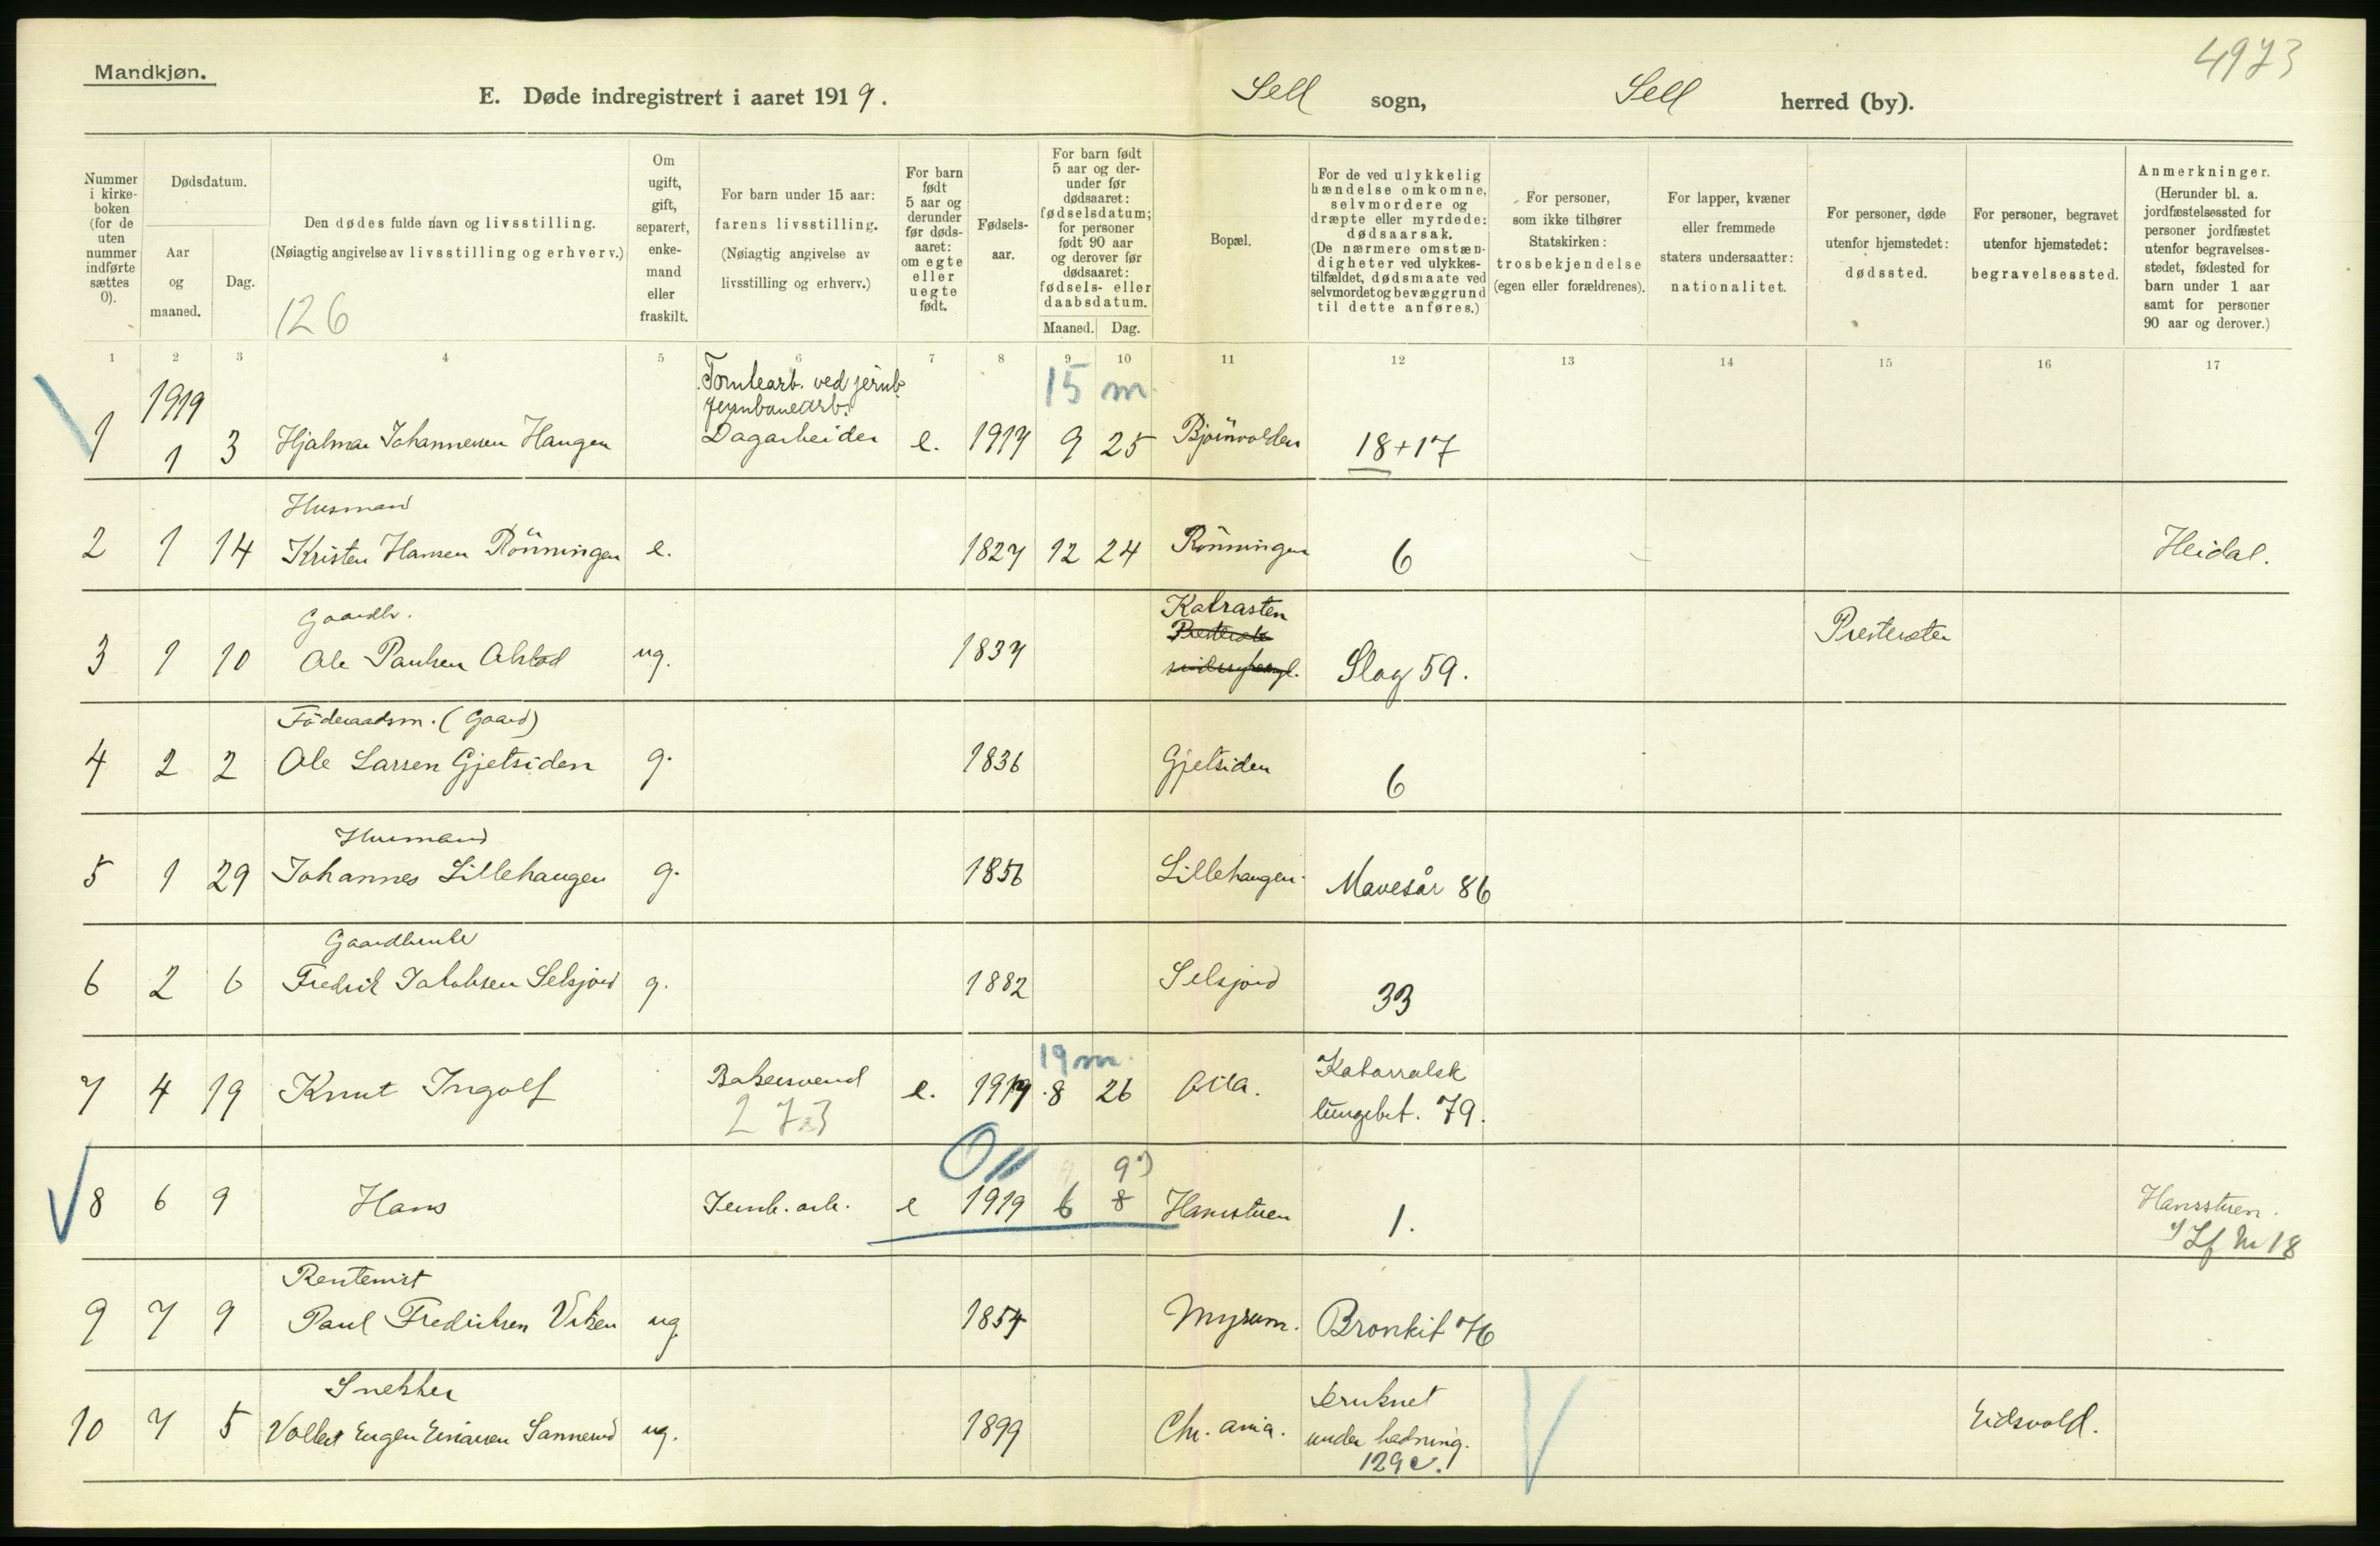 Mandkjøn.
4973
E. Døde indregistrert i aaret 1919. Sell sogn, Sell herred (by).
Nummer i kirkeboken (for de uten nummer indførte sættes 0).
Dødsdatum.
Aar og maaned.
Dag.
Den dødes fulde navn og livsstilling.
(Nøiagtig angivelse av livsstilling og erhverv.)
126
Om ugift, gift, separert, enkemand eller fraskilt.
For barn under 15 aar:
farens livsstilling.
(Nøiagtig angivelse av livsstilling og erhverv.)
For barn født 5 aar og derunder før dødsaaret: om egte eller uegte født.
Fødselsaar.
For barn født 5 aar og derunder før dødsaaret: fødselsdatum; for personer født 90 aar og derover før dødsaaret: fødsels- eller daabsdatum.
Maaned. Dag.
Bopæl.
For de ved ulykkelig hændelse omkomne, selvmordere og dræpte eller myrdede: dødsaarsak.
(De nærmere omstændigheter ved ulykkestilfældet, dødsmaate ved selvmordet og bevæggrund til dette anføres.)
For personer, som ikke tilhører Statskirken: trosbekjendelse (egen eller forældrenes).
For lapper, kvæner eller fremmede staters undersaatter: nationalitet.
For personer, døde utenfor hjemstedet: dødssted.
For personer, begravet utenfor hjemstedet: begravelsessted.
Anmerkninger.
(Herunder bl. a. jordfæstelsessted for personer jordfæstet utenfor begravelsesstedet, fødested for barn under 1 aar samt for personer 90 aar og derover.)
1 2 3 4 5 6 7 8 9 10 11 12 13 14 15 16 17
1919
ved jernb.
Jernbanearb.
15 m.
1 1 3 Hjalmar Johannesen Haugen Dagarbeider e. 1917 9 25 18+17
Husmand
2 1 14 Kristen Hansen Rönningen e. 1827 12 24 Rönningen 6 Heidal.
Gaardbr.
3 1 10 Ole Paulsen ug. 1837 Slag 59.
Föderaadsm. (Gaard)
4 2 2 Ole Larsen Gjetsiden g. 1836 Gjetsiden 6
Husmand
5 1 29 Johannes Lillehaugen g. 1856 Lillehaugen. Mavesår 86
Gaardbruker
6 2 6 Fredrik Jakobsen Selsjord g. 1882 Selsjord 33
19 m.
7 4 19 Knut Ingolf Bakersvend e. 1917 8 26 Otta. Katarralsk
273 lungebet. 79.
8 6 9 Hans Jernb. arb. e 1919 6 8 9 Hansstuen 1. Hansstuen.
Rentenist
9 7 9 Paul Fredriksen Viken ug 1854 Myrum. Bronkit 76
Snekker
10 7 5 Eugen Sannerud ug. 1899 Chr. ania. Druknet
under badning. Eidsvold.
129 c.